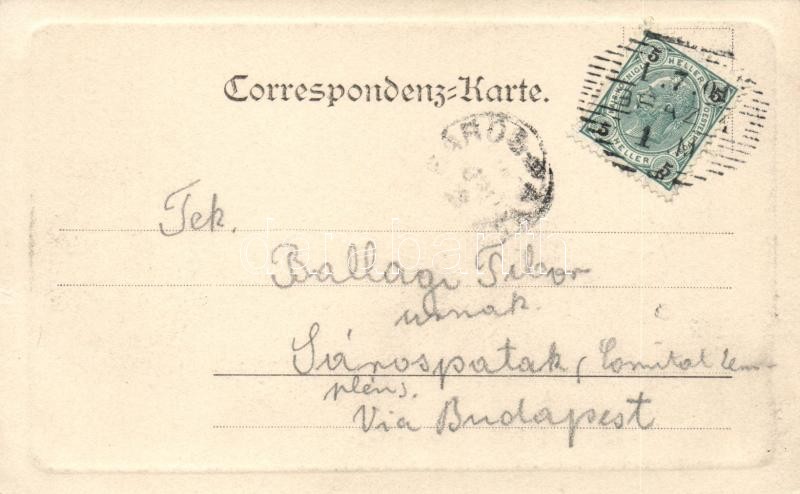 Correspondenz=Karte.
5 HELLER 5
5 HELLER 5
SÁROS
Tek.
Ballagi Tibor
urnak.
Sárospatak, (Comitat Zem-
plén).
Via Budapest
darabanth